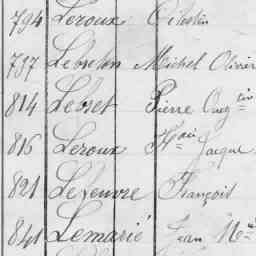 794 Leroux Célestin
797 Lebreton Michel Olivier
814 Lebret Pierre Aug
816 Leroux Jacque
821 Lefeuvre François
841 Lemarié Jean